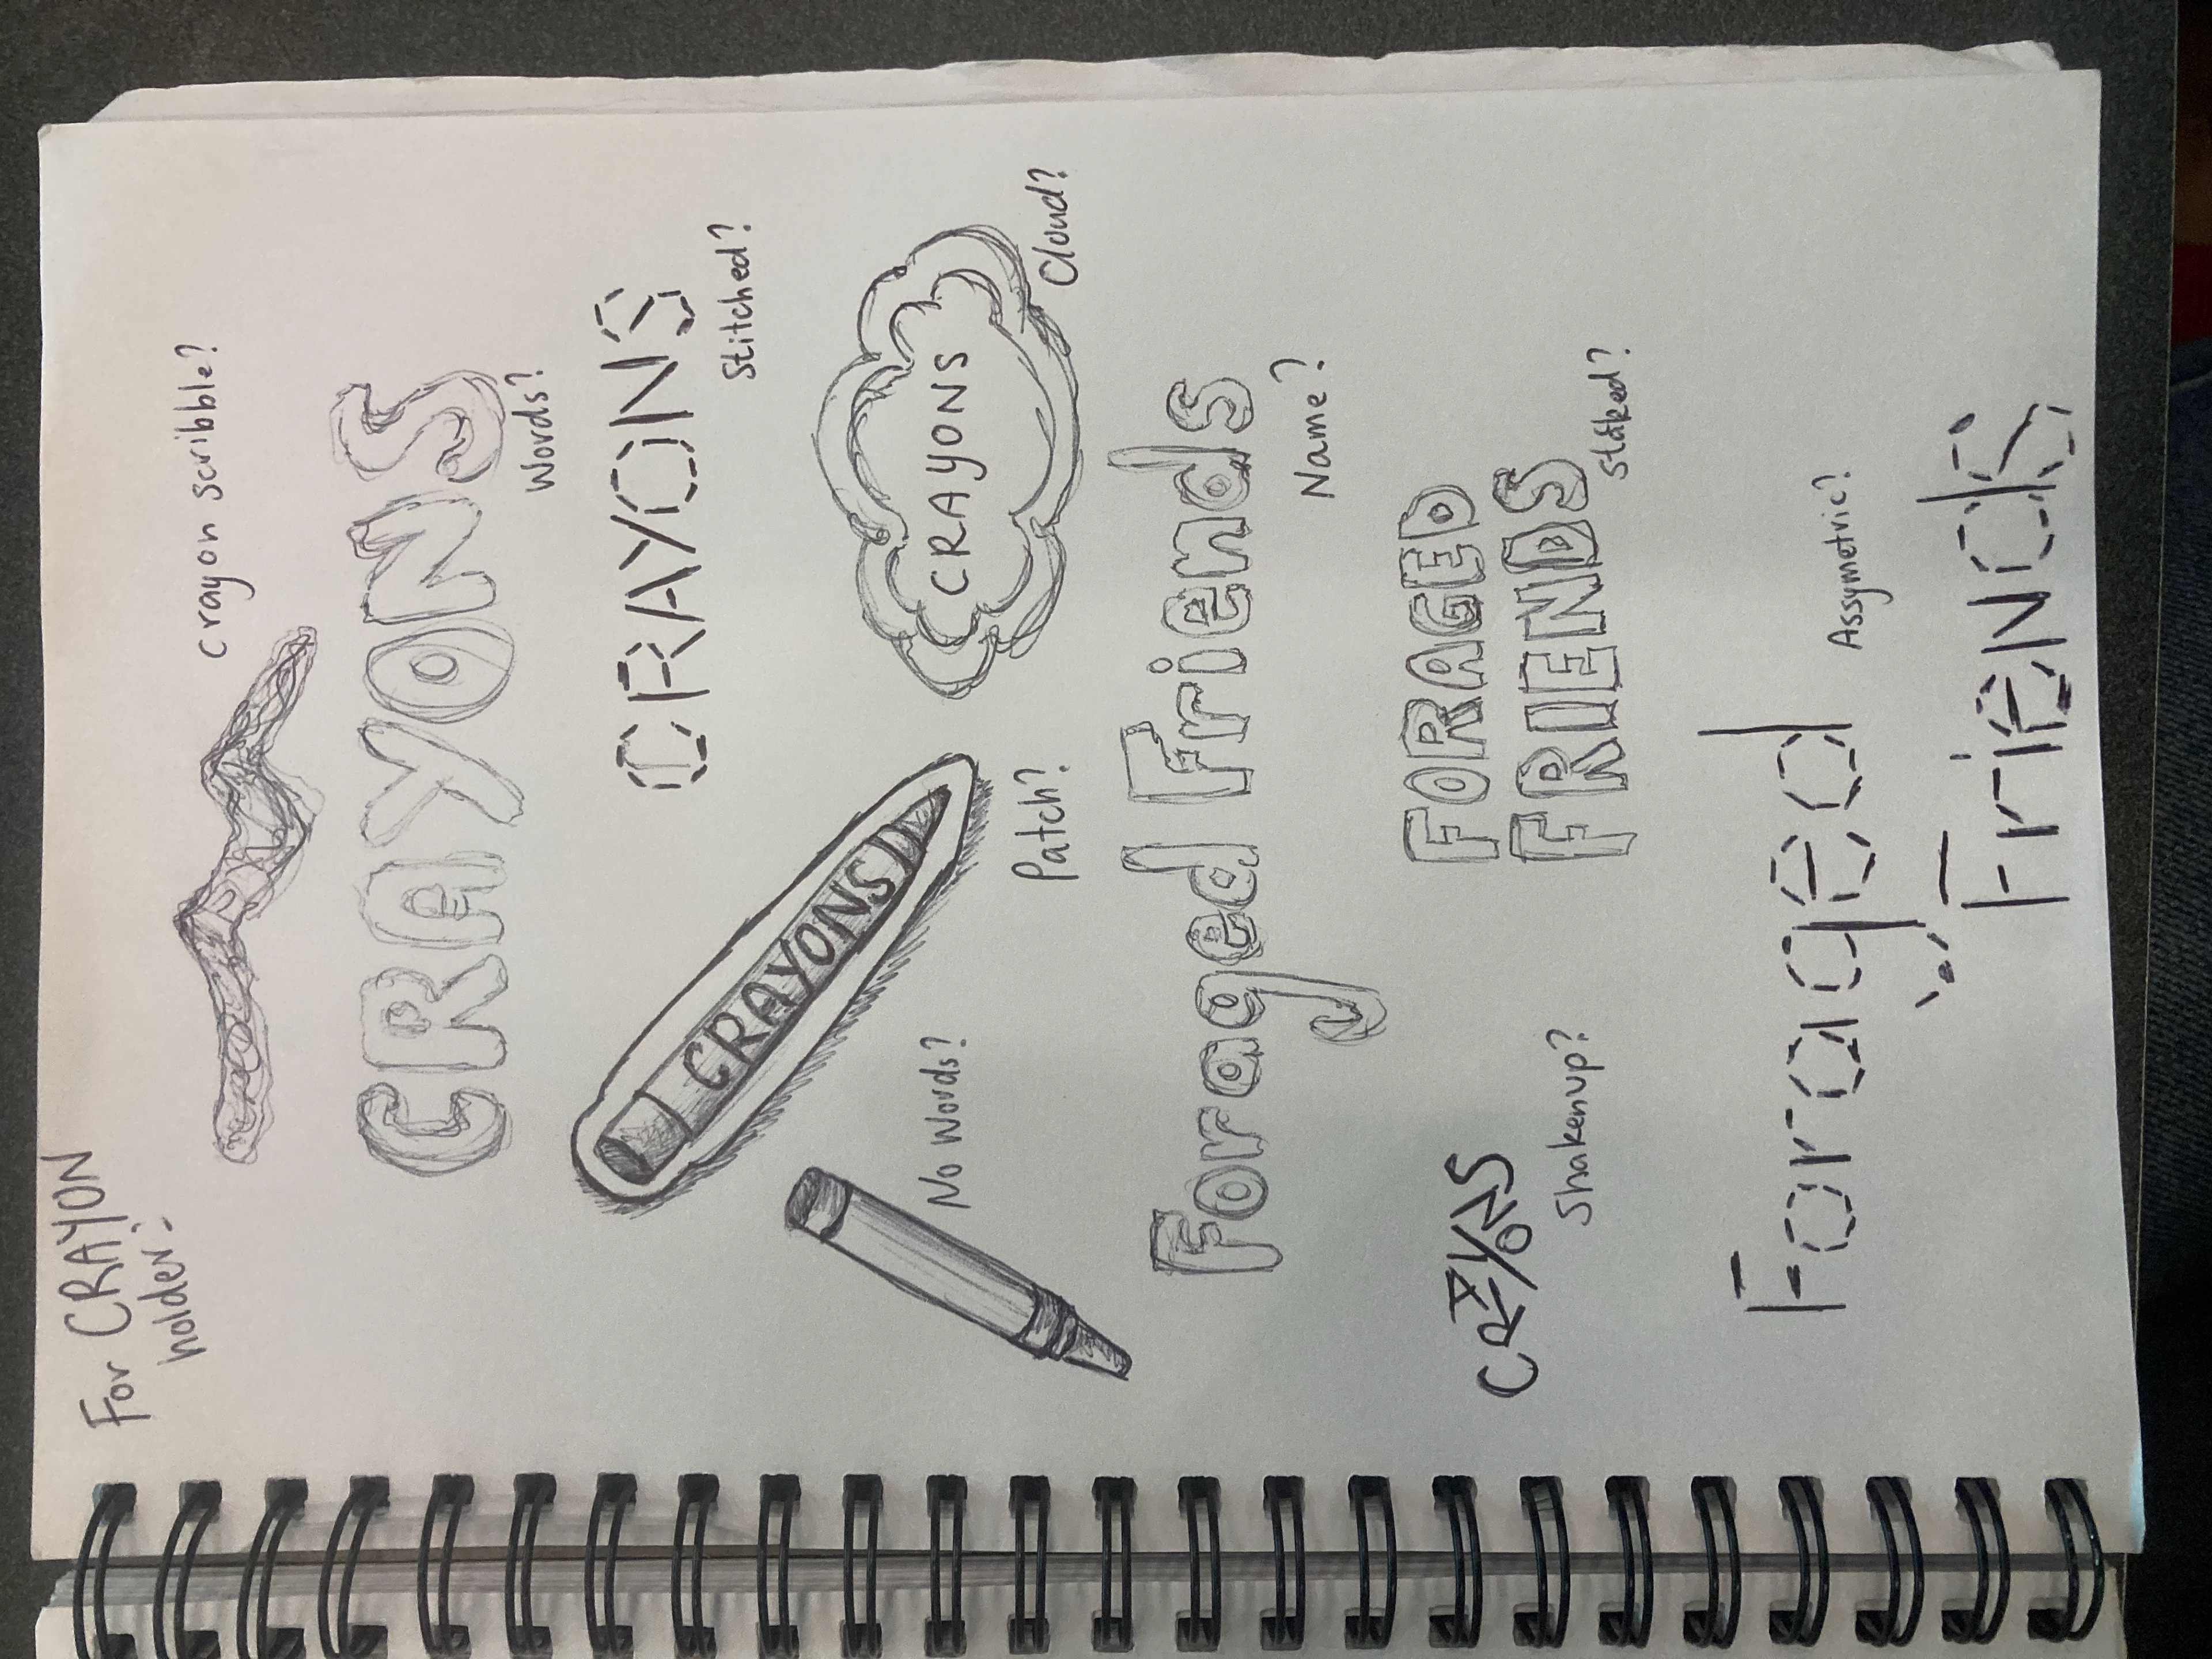 For CRAYON
holder:
crayon scribble?
CRAYONS
Words?
CRAYONS
Stitched?
CRAYONS
Patch?
CRAYONS
Cloud?
No Words?
Foraged Friends
Name?
CRAYONS
Shakenup?
FORAGED
FRIENDS
Staked?
Foraged
Assymetric?
FrieNds